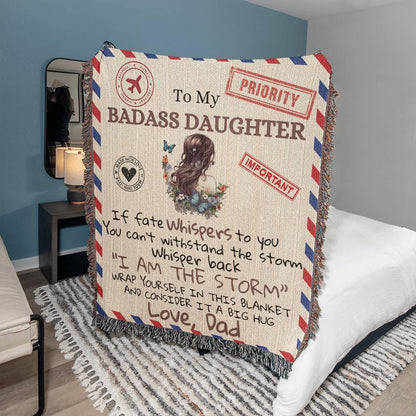 PRIORITY
To My
BADASS DAUGHTER
IMPORTANT
If fate Whispers to you
You can't withstand the storm
Whisper back
"I AM THE STORM"
WRAP YOURSELF IN THIS BLANKET
AND CONSIDER IT A BIG HUG
Love, Dad